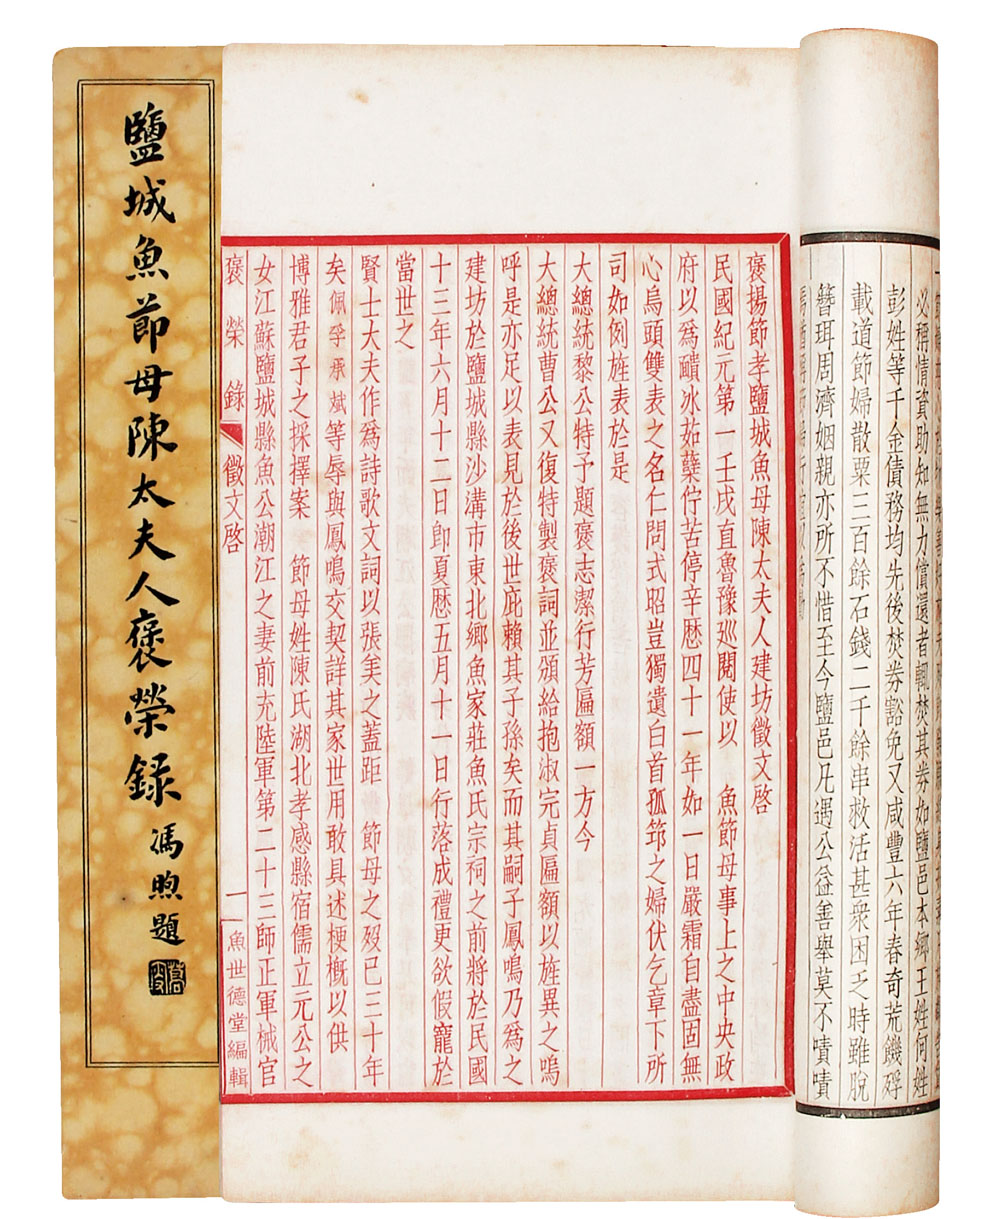 鹽城魚節母陳太夫人褒榮録
馮煦題
褒揚節孝鹽城魚母陳太夫人建坊徵文啓
民國紀元第一壬戌直魯豫巡閱使以　魚節母事上之中央政
府以爲齧冰茹蘗佇苦停辛歷四十一年如一日嚴霜自盡固無
心烏頭雙表之名仁問式昭豈獨遺白首孤筇之婦伏乞章下所
司如例旌表於是
大總統黎公特予題褒志潔行芳匾額一方今
大總統曹公又復特製褒詞並頒給抱淑完貞匾額以旌異之嗚
呼是亦足以表見於後世庇賴其子孫矣而其嗣子鳳鳴乃爲之
建坊於鹽城縣沙溝市東北鄉魚家莊魚氏宗祠之前將於民國
十三年六月十二日卽夏歷五月十一日行落成禮更欲假寵於
當世之
賢士大夫作爲詩歌文詞以張美之蓋距　節母之歿已三十年
矣佩孚承斌等辱與鳳鳴交契詳其家世用敢具述梗概以供
博雅君子之採擇案　節母姓陳氏湖北孝感縣宿儒立元公之
女江蘇鹽城縣魚公潮江之妻前充陸軍第二十三師正軍械官
褒榮錄　徵文啓　一　魚世德堂編輯
必稱情資助知無力償還者輒焚其券如鹽邑本鄉王姓何姓
彭姓等千金債務均先後焚券豁免又咸豐六年春奇荒饑殍
載道節婦散粟三百餘石錢二千餘串救活甚衆困乏時雖脫
簪珥周濟姻親亦所不惜至今鹽邑凡遇公益善舉莫不嘖嘖